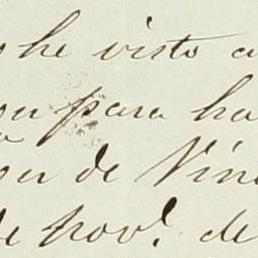 he visto a
para ha
de Vin
de Nov.e de